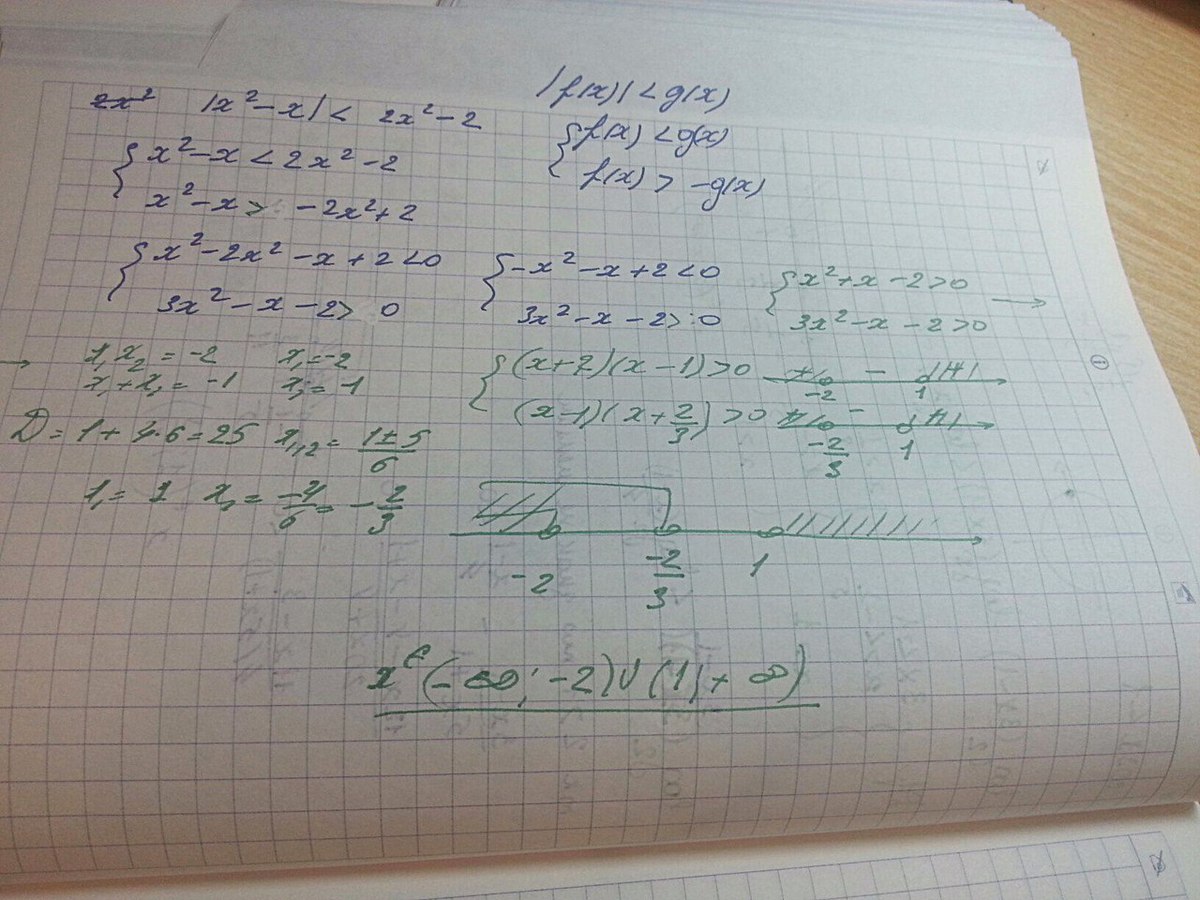 |f(x)| < g(x)
2x² |x² - x| < 2x² - 2
{ x² - x < 2x² - 2 { f(x) < g(x)
x² - x > -2x² + 2 f(x) > -g(x)
{ x² - 2x² - x + 2 < 0 { -x² - x + 2 < 0 { x² + x - 2 > 0 →
3x² - x - 2 > 0 3x² - x - 2 > 0 3x² - x - 2 > 0
→ x₁x₂ = -2 x₁ = -2 { (x+2)(x-1) > 0 + -2 - 1 +
x₁ + x₂ = -1 x₂ = 1 (x-1)(x+2/3) > 0 + -2/3 - 1 +
D = 1 + 4·6 = 25 x₁,₂ = (1±5)/6
x₁ = 1 x₂ = -4/6 = -2/3
-2 -2/3 1
x ∈ (-∞; -2) ∪ (1; +∞)